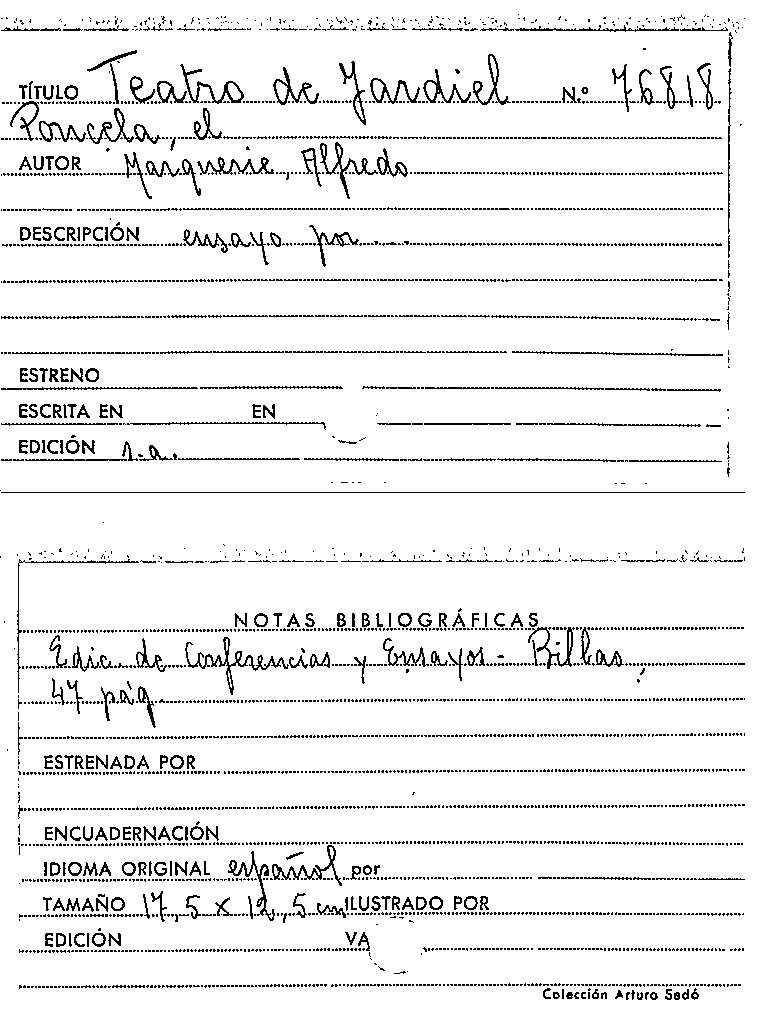 TÍTULO Teatro de Jardiel N.º 76818
Poncela, el
AUTOR Marquerie, Alfredo
DESCRIPCIÓN ensayo por ...
ESTRENO
ESCRITA EN EN
EDICIÓN s.a.
NOTAS BIBLIOGRÁFICAS
Edic. de Conferencias y Ensayos - Bilbao,
47 pág.
ESTRENADA POR
ENCUADERNACIÓN
IDIOMA ORIGINAL español por
TAMAÑO 17,5 x 12,5 cm ILUSTRADO POR
EDICIÓN VA
Colección Arturo Sedó